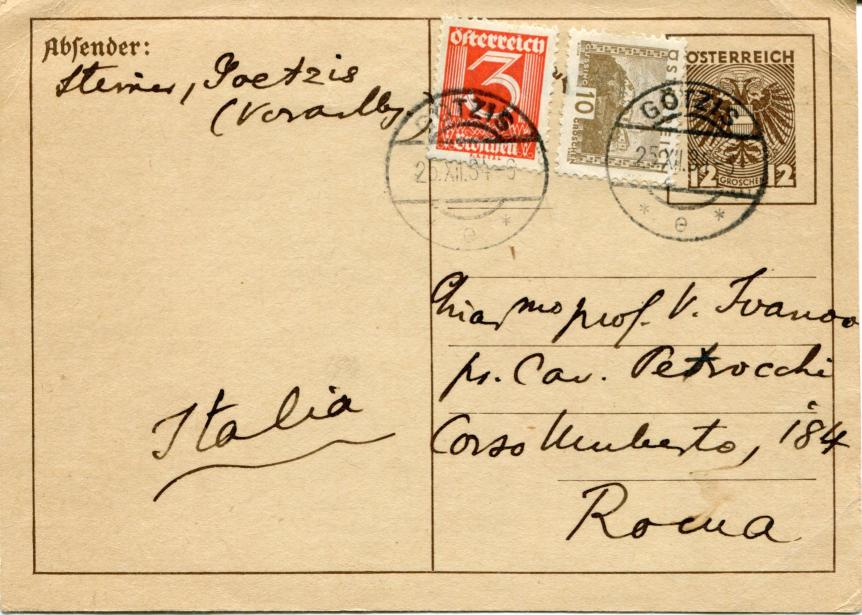 Absender:
Steiner, Goetzis
(Vorarlbg.)
Österreich
3
Groschen
10
GROSCHEN
ÖSTERREICH
12 GROSCHEN 12
GÖTZIS
25.XII.34-9
* e *
GÖTZIS
25.XII.34
* e *
Chiarmo prof. V. Ivanov
pr. Cav. Petrocchi
Corso Umberto, 184
Roma
Italia